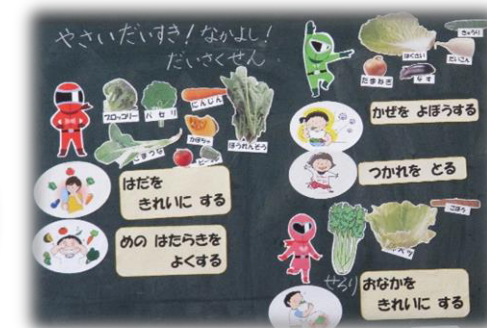 やさいだいすき!なかよし!
だいさくせん
ブロッコリー
パセリ
にんじん
こまつな
かぼちゃ
ピーマン
ほうれんそう
はだを
きれいに する
めの はたらきを
よくする
きゅうり
はくさい
だいこん
たまねぎ
なす
かぜを よぼうする
つかれを とる
せろり
ごぼう
おなかを
きれいに する